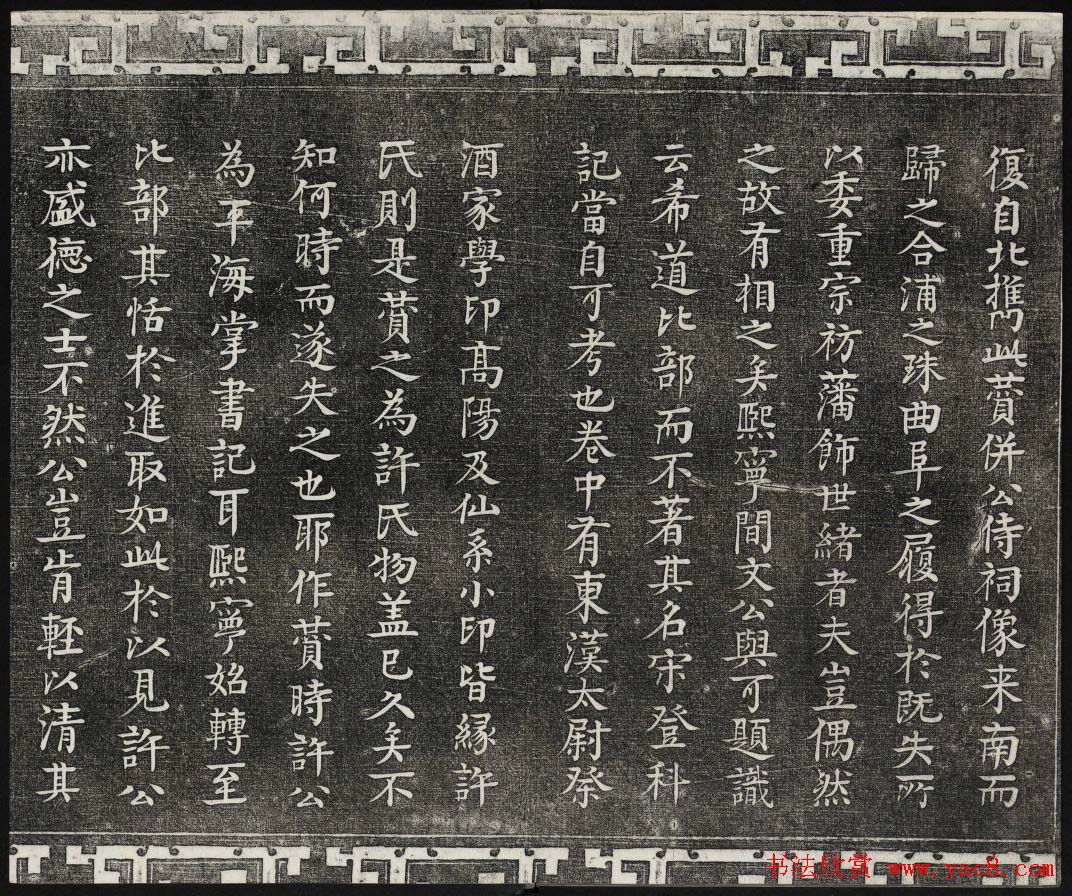 復自北携此賛併公侍祠像来南而
歸之合浦之珠曲阜之履得於既失所
以委重宗祊藩飾世緒者夫豈偶然
之故有相之矣熙寧間文公與可題識
云希道比部而不著其名宋登科
記當自可考也卷中有東漢太尉祭
酒家學印高陽及仙系小印皆緣許
氏則是賛之為許氏物盖已久矣不
知何時而遂失之也耶作賛時許公
為平海掌書記耳熙寧始轉至
比部其恬於進取如此於以見許公
亦盛德之士不然公豈肯輕以清其
书法欣赏 www.yac8.com